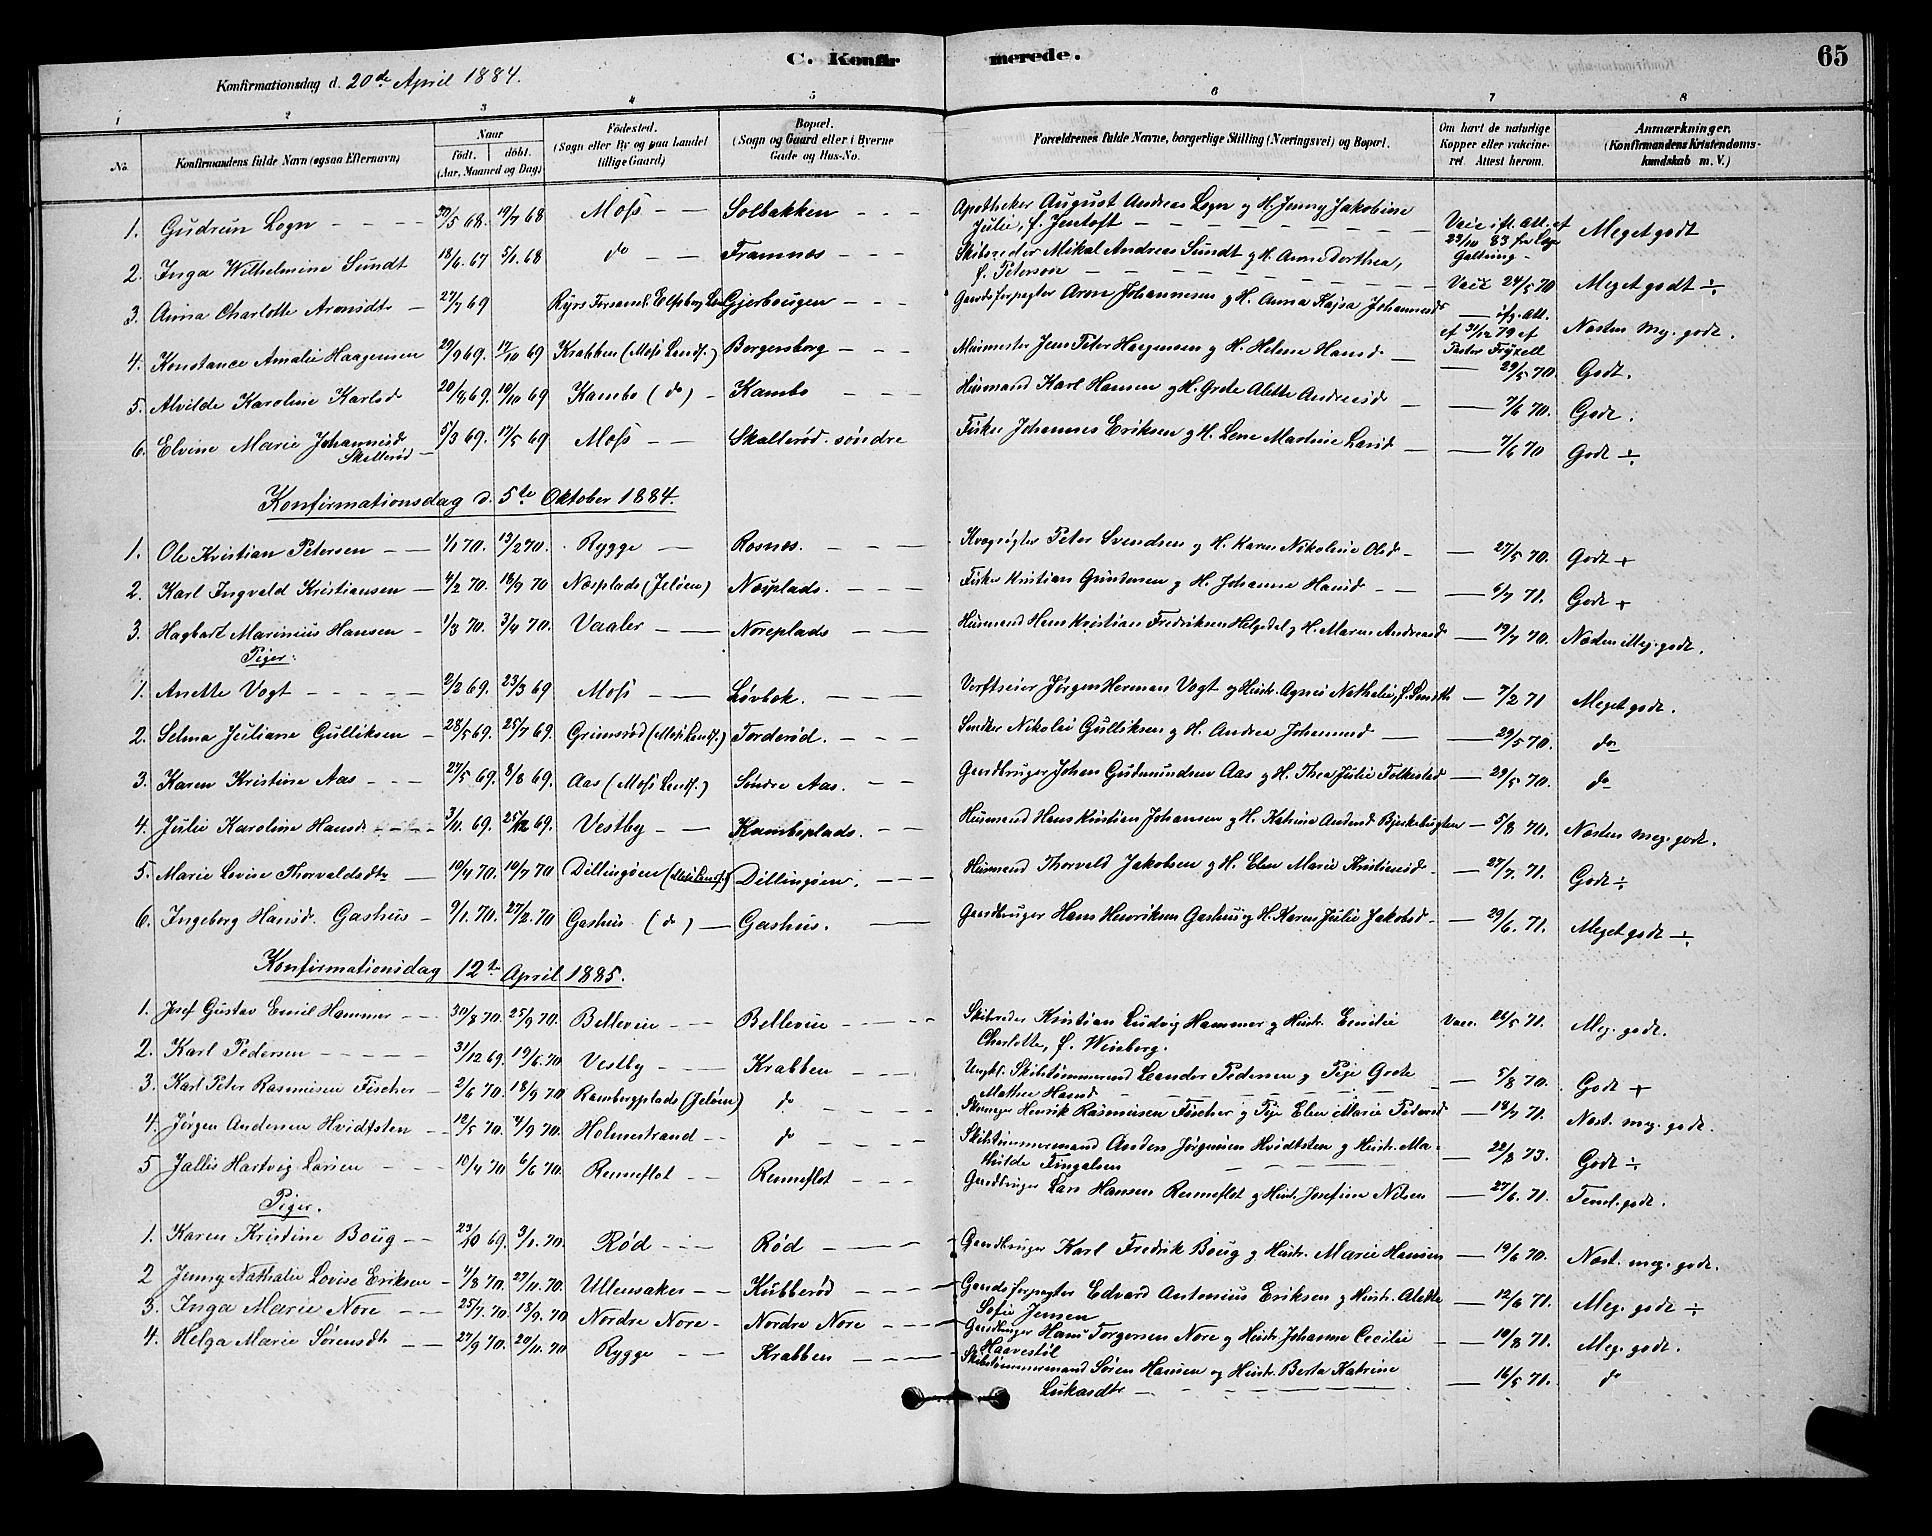 C. Konfirmerede.
65
Konfirmationsdag d. 20de April 1884.
1 2 3 4 5 6 7 8
No. Konfirmandens fulde Navn (ogsaa Efternavn) Naar födt. döbt. (Aar, Maaned og Dag) Födested. (Sogn eller By og paa Landet tillige Gaard) Bopæl. (Sogn og Gaard eller i Byerne Gade og Hus-No. Forældrenes fulde Navne, borgerlige Stilling (Næringsvei) og Bopæl. Om havt de naturlige Kopper eller vakcineret. Attest herom. Anmærkninger. (Konfirmandens Kristendomskundskab m. V.)
1. Gudrun Logn - - - 30/5 68. 19/7 68 Moss - - Solbakken - - - Apotheker August Andreas Logn og H. Jenny Jakobine Julie, f. Jentoft - - - Vacc. ifl. Att. af 29/10 83 fra Læge Galtung - Meget godt
2. Inga Wilhelmine Sundt 18/6. 67 5/1. 68 do - - Framnæs - - - Skibsreder Mikal Andreas Sundt og H. Anne Dorthea, f. Peterson - - - Vacc 24/5 70 Meget godt ÷
3. Anna Charlotte Aronsdtr - 27/7 69 Ryrs Forsaml. Elfsborg Län Gjerbougen - - - Gaardsforpagter Aron Johannesen og H. Anna Kajsa Johannesd - ifg. Att. af 31/12 79 af Pastor Fryxell Næsten meg. godt.
4. Konstance Amalie Haagensen 29/9 69. 17/10 69 Krabben (Moss Lands.) Borgersborg - - - Murmester Jens Peter Haagensen og H. Helene Hansd - 29/5 70. Godt.
5. Alvilde Karoline Karlsd 20/8 69. 19/10 69 Kambo (do) - Kambo - - - Husmand Karl Hansen og H. Grete Alette Andreasd - 7/6 70. Godt.
6. Elvine Marie Johannesd Skallerød - 5/3 69. 17/5 69 Moss - - Skallerød søndre Fisker Johannes Eriksen og H. Lene Mastine Larsd - 7/6 70 Godt ÷
Konfirmationsdag d. 5te Oktober 1884.
1. Ole Kristian Petersen - - 1/1 70. 13/2 70. Rygge - Rosnæs. - - - Kvægrøgter Peter Svendsen og H. Karen Nikoline Olsd - - 27/5 70. Godt +
2. Karl Ingvald Kristiansen - 4/2 70. 18/9 70 Næsplads (Jeløen) Næsplads. - - - Fisker Kristian Gundersen og H. Johanne Hansd - - 6/7 71. Godt +
3. Hagbart Marinius Hansen - 1/3 70. 3/4 70. Vaaler - Noreplads - - - Husmand Hans Kristian Fredriksen Helgedal og H. Maren Andreasd - 19/7 70. Næsten Meg. godt.
Piger:
1. Anette Vogt - - - - 2/2 69. 23/3 69 Moss - - Løvbok. - - - Verftseier Jørgen Herman Vogt og Hustr. Agnes Nathalie, f. Smith - 7/2 71 Meget godt.
2. Selma Juliane Gulliksen - 28/5 69. 25/7 69. Grimsrød (Moss Landf.) Torderød. - - - Snedker Nikolai Gulliksen og H. Andrea Johannesd - - 29/5 70. do
3. Karen Kristine Aas - - - 27/5 69. 8/8 69. Aas (Moss Landf.) Søndre Aas. - - Gaardbruger Johan Gudmundsen Aas og H. Thea Julie Folkestad - 29/5 70. do
4. Julie Karoline Hansd - - - 3/11. 69. 25/12 69. Vestby - - Kamboplads. - - Husmand Hans Kristian Johansen og H. Katrine Andersd Bjerkebugten - 5/8 70. Næsten meg. godt.
5. Marie Lovise Thorvaldsdtr - 19/4 70. 19/7 70 Dillingøen (Moss Landf.) Dillingøen. - - - Husmand Thorvald Jakobsen og H. Elen Marie Kristiansd - - 27/7. 71. Godt ÷
6. Ingeborg Hansd. Gashus - 9/1. 70. 27/2. 70 Gashus (do) - Gashus. - Gaardbruger Hans Henriksen Gashus og H. Karen Julie Jakobsd - - 29/6. 71. Meget godt ÷
Konfirmationsdag 12te April 1885.
1. Josef Gustav Emil Hammer - - 30/8 70. 25/9 70. Bellevue - - Bellevue - - - Skibsreder Kristian Ludvig Hammer og Hustr. Emilie Charlotte, f. Weinborg. Vacc. 26/5 71. Meg. godt.
2. Karl Pedersen - - - - 31/12 69. 19/6. 70 Vestby - - Krabben - - - Ungk. Skibstømmermand Leander Pedersen og Pige Grete Mathea Hansd - 5/8 70. Godt +
3. Karl Peter Rasmusen Fischer - 2/6 70. 18/9 70 Rambergplads (Jeløen) do - - - Skomager Henrik Rasmusen Fischer og Pige Elen Marie Pedersd - 18/7 71. Næst. meg. godt.
4. Jørgen Andersen Hvidtsten - - 12/5 70. 4/9 70. Holmestrand - - do - - - Skibstømmermand Anders Jørgensen Hvidtsten og Hustr. Mathilde Fingalsen - - - 22/8 73. Godt ÷
5 Jallis Hartvig Larsen - - - 10/4 70 6/6 70. Renneflot - - Renneflot - - - Gaardbruger Lars Hansen Renneflot og Hustr. Josefine Nilsen - 27/6. 71. Teml. godt.
Piger.
1. Karen Kristine Boug - - 23/10 69. 3/1. 70. Rød - - - Rød - - - Gaardbruger Karl Fredrik Boug og Hustr. Marie Hansen - 19/6 70. Næst. meg. godt.
2 Jenny Nathalie Lovise Eriksen - 1/8 70. 27/11. 70. Ullensaker - - Kubberød - - - Gaardsforpagter Edvard Antonius Eriksen og Hustr. Alette Sofie Jensen - 12/6 71. Meg. godt ÷
3. Inga Marie Nore - - 25/7. 70. 18/9. 70 Nordre Nore - Nordre Nore - - - Gaardbruger Hans Torgersen Nore og Hustr. Johanne Cecilie Haavestöl - 10/8 71. Meg. godt.
4. Helga Marie Sørensdt - - 27/9 70. 20/11. 70 Rygge - - Krabben - - - Skibstømmermand Søren Hansen og Hustr. Berta Katrine Lukasdtr - - - 16/5 71. do